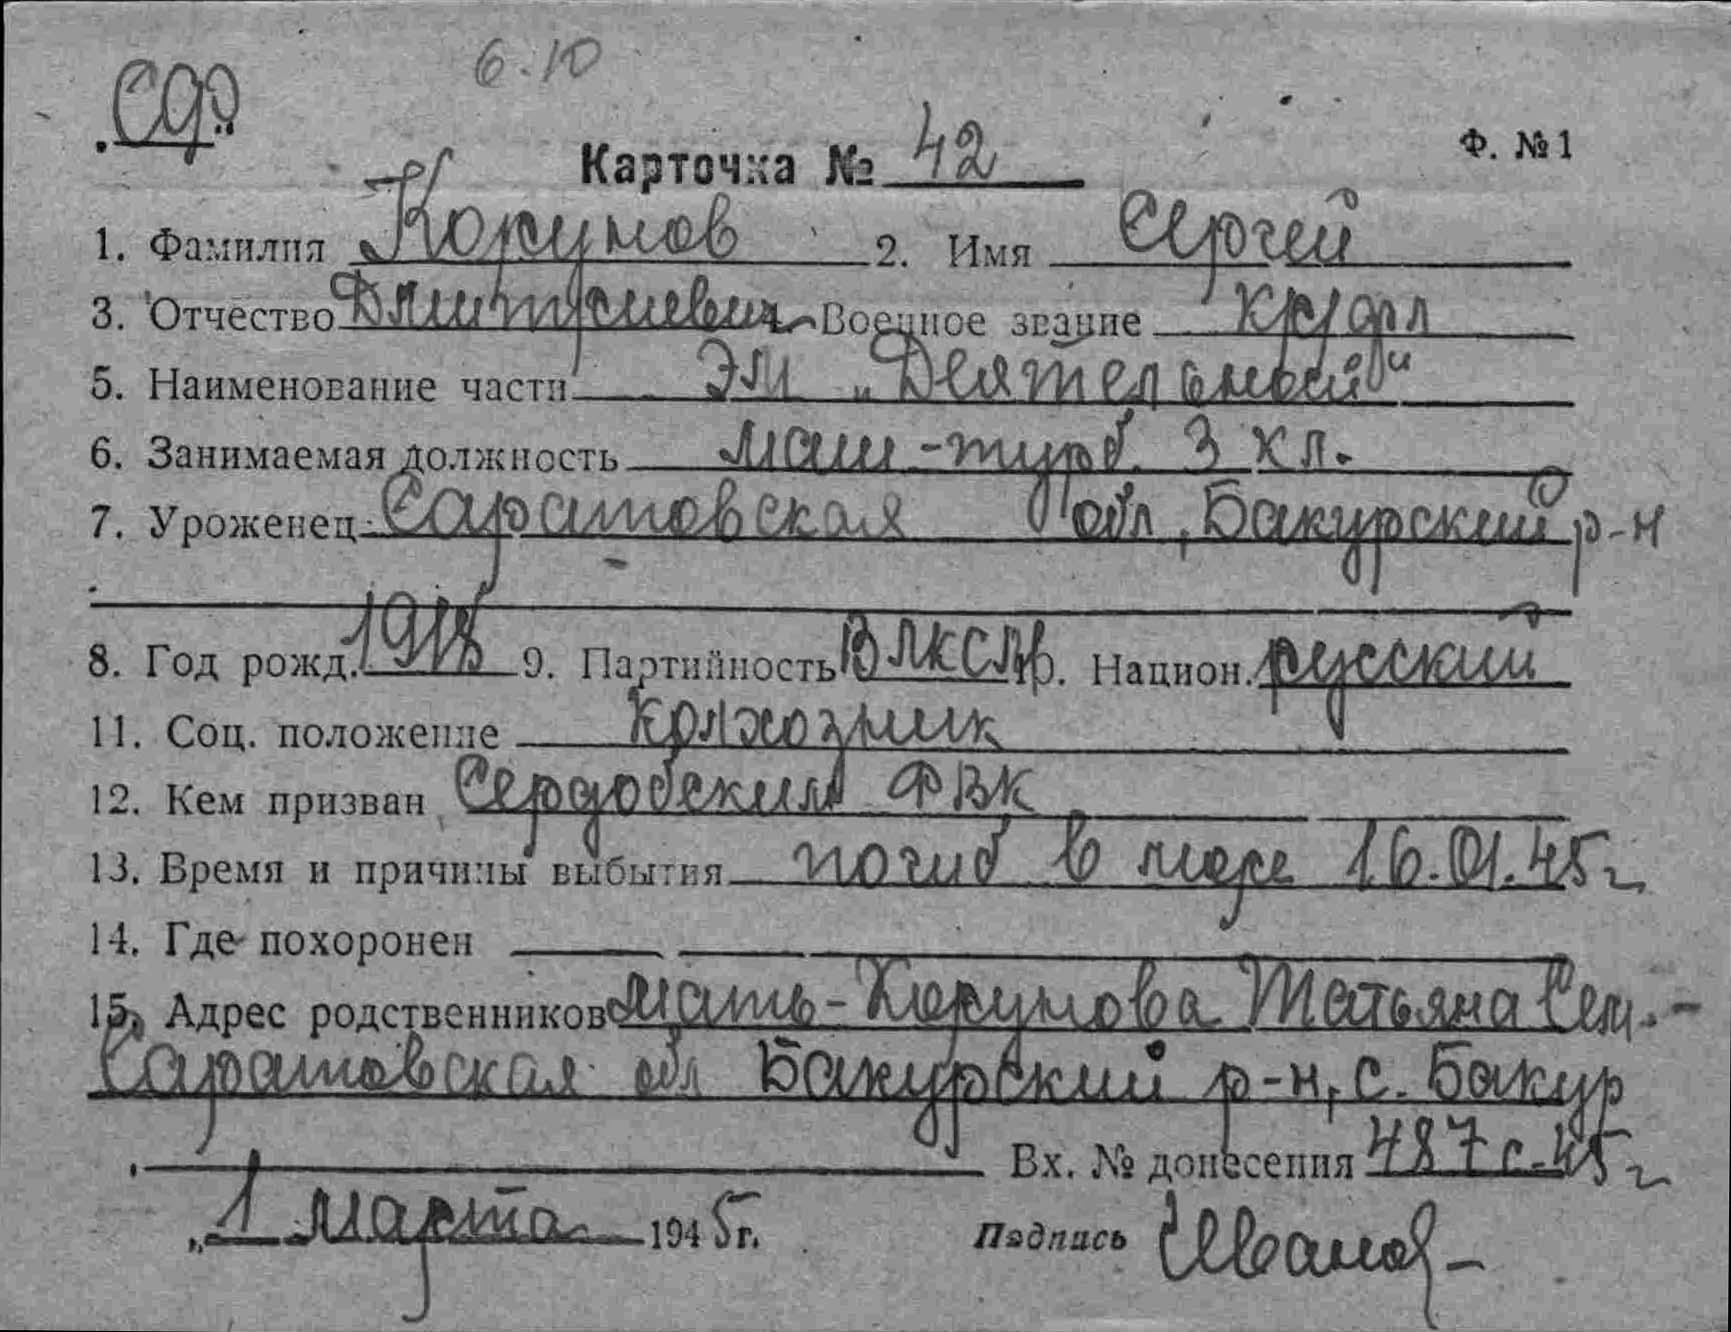 6.10
Карточка № 42
Ф. № 1
1. Фамилия Коркунов 2. Имя Сергей
3. Отчество Дмитриевич Военное звание кр/фл
5. Наименование части ЭМ „Деятельный"
6. Занимаемая должность маш-турб. 3 кл.
7. Уроженец Саратовская обл, Бакурский р-н
8. Год рожд. 1918 9. Партийность ВЛКСМ Национ. русский
11. Соц. положение колхозник
12. Кем призван Сердобским РВК
13. Время и причины выбытия погиб в море 16.01.45г
14. Где похоронен
15. Адрес родственников Мать- Татьяна Сем.-
Саратовская обл Бакурский р-н, с. Бакур
Вх. № донесения 487с-45г
„1 марта 1945г. Подпись Иванов